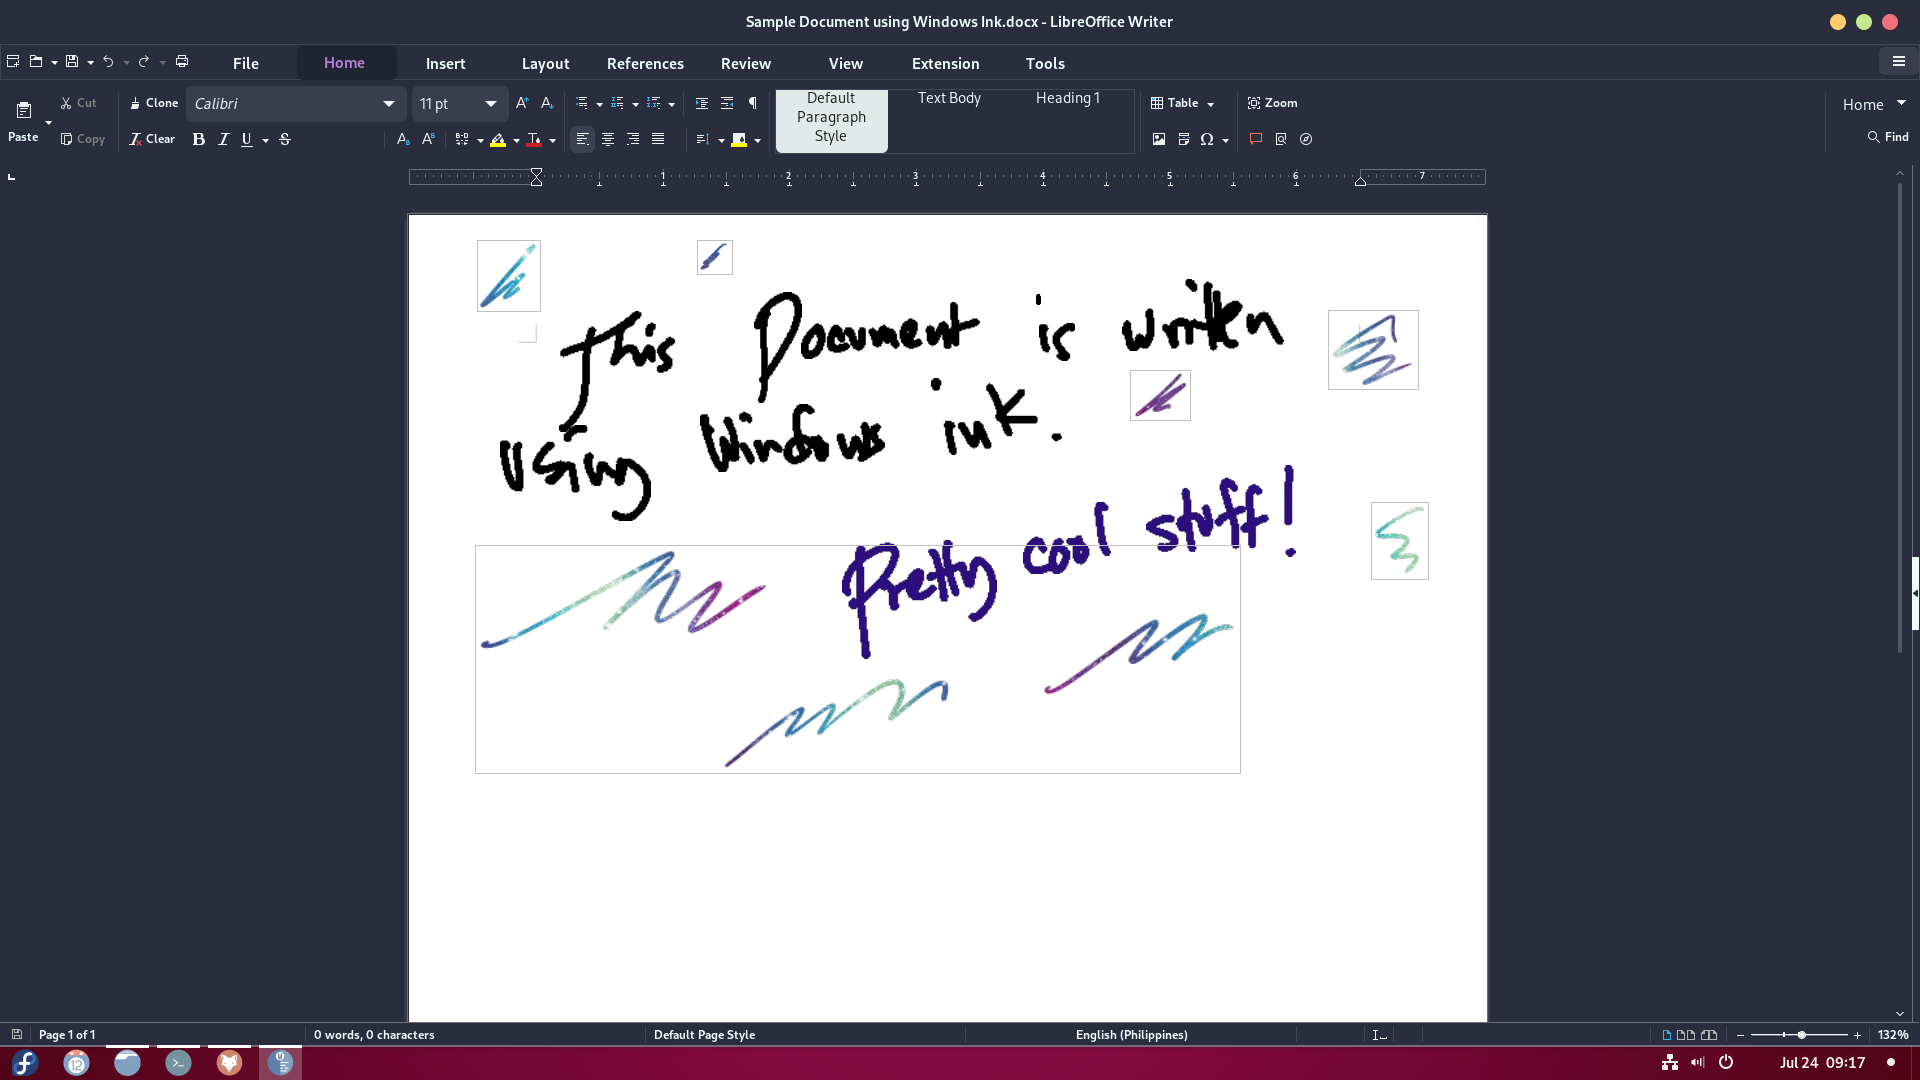 Sample Document using Windows Ink.docx - LibreOffice Writer
File Home Insert Layout References Review View Extension Tools
Cut Clone Calibri 11 pt Default Paragraph Style Text Body Heading 1 Table Zoom Home
Paste Copy Clear Find
1 2 3 4 5 6 7
This Document is written
using Windows ink.
Pretty cool stuff!
Page 1 of 1 0 words, 0 characters Default Page Style English (Philippines) 132%
12 Jul 24 09:17